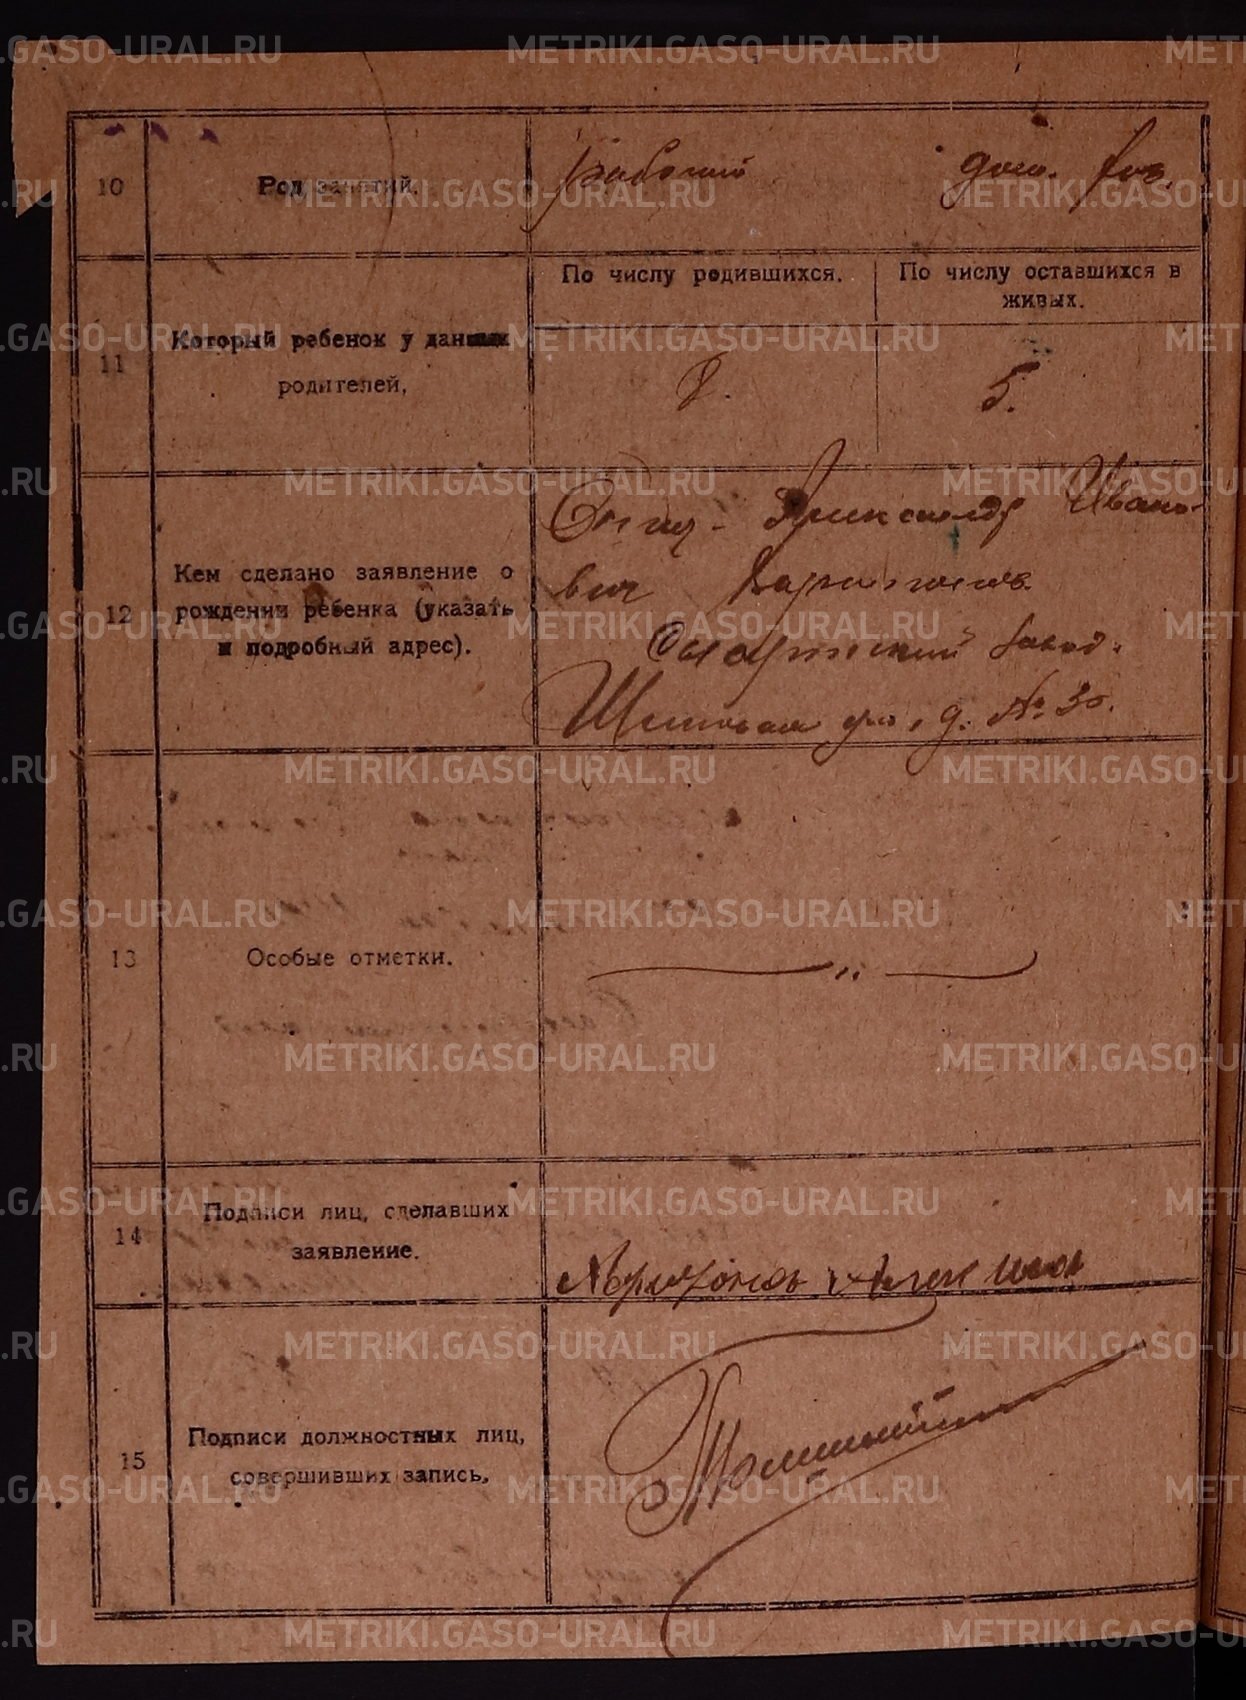 10
Род занятий.
рабочий
дом. хоз.
11
Который ребенок у данных
родителей,
По числу родившихся.
По числу оставшихся в
живых.
8.
5.
12
Кем сделано заявление о
рождении ребенка (указать
и подробный адрес).
Отец - Александр Ивано-
вич
завод.
ул., д. № 30.
13
Особые отметки.
14
Подписи лиц, сделавших
заявление.
15
Подписи должностных лиц,
совершивших запись.
METRIKI.GASO-URAL.RU